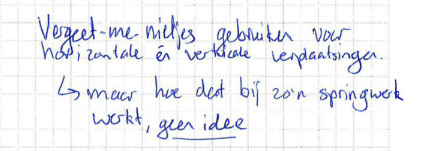 Vergeet-me-nietjes gebruiken voor
horizontale én verticale verplaatsingen.
↳ maar hoe dat bij zo'n springwerk
werkt, geen idee